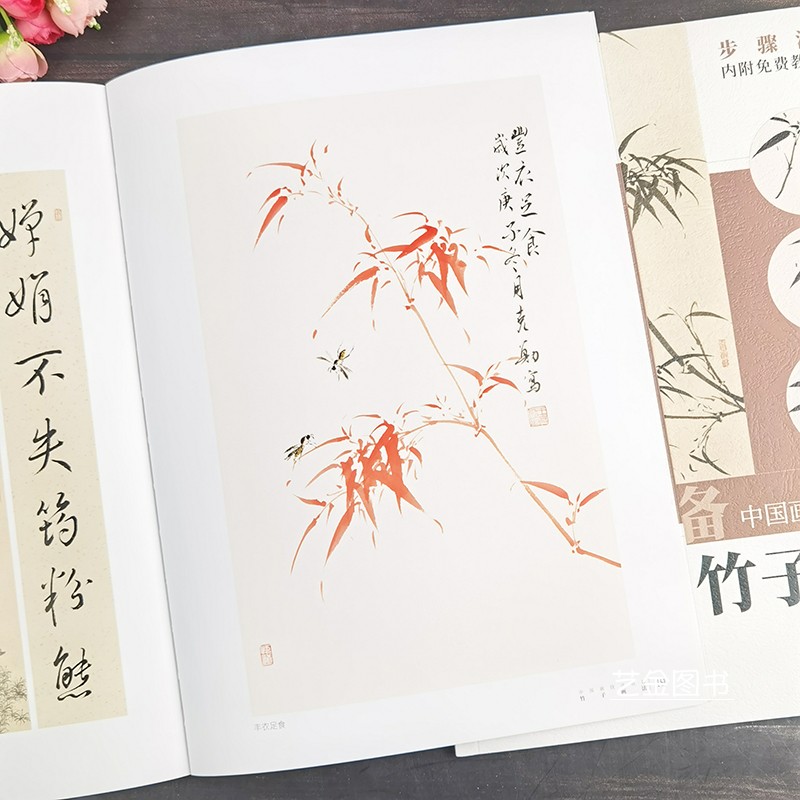 婵娟不失筠粉態
豐衣足食
歲次庚子冬月克勤寫
丰衣足食
竹子
步骤
内附免费教
备
中国画
竹子
艺金图书